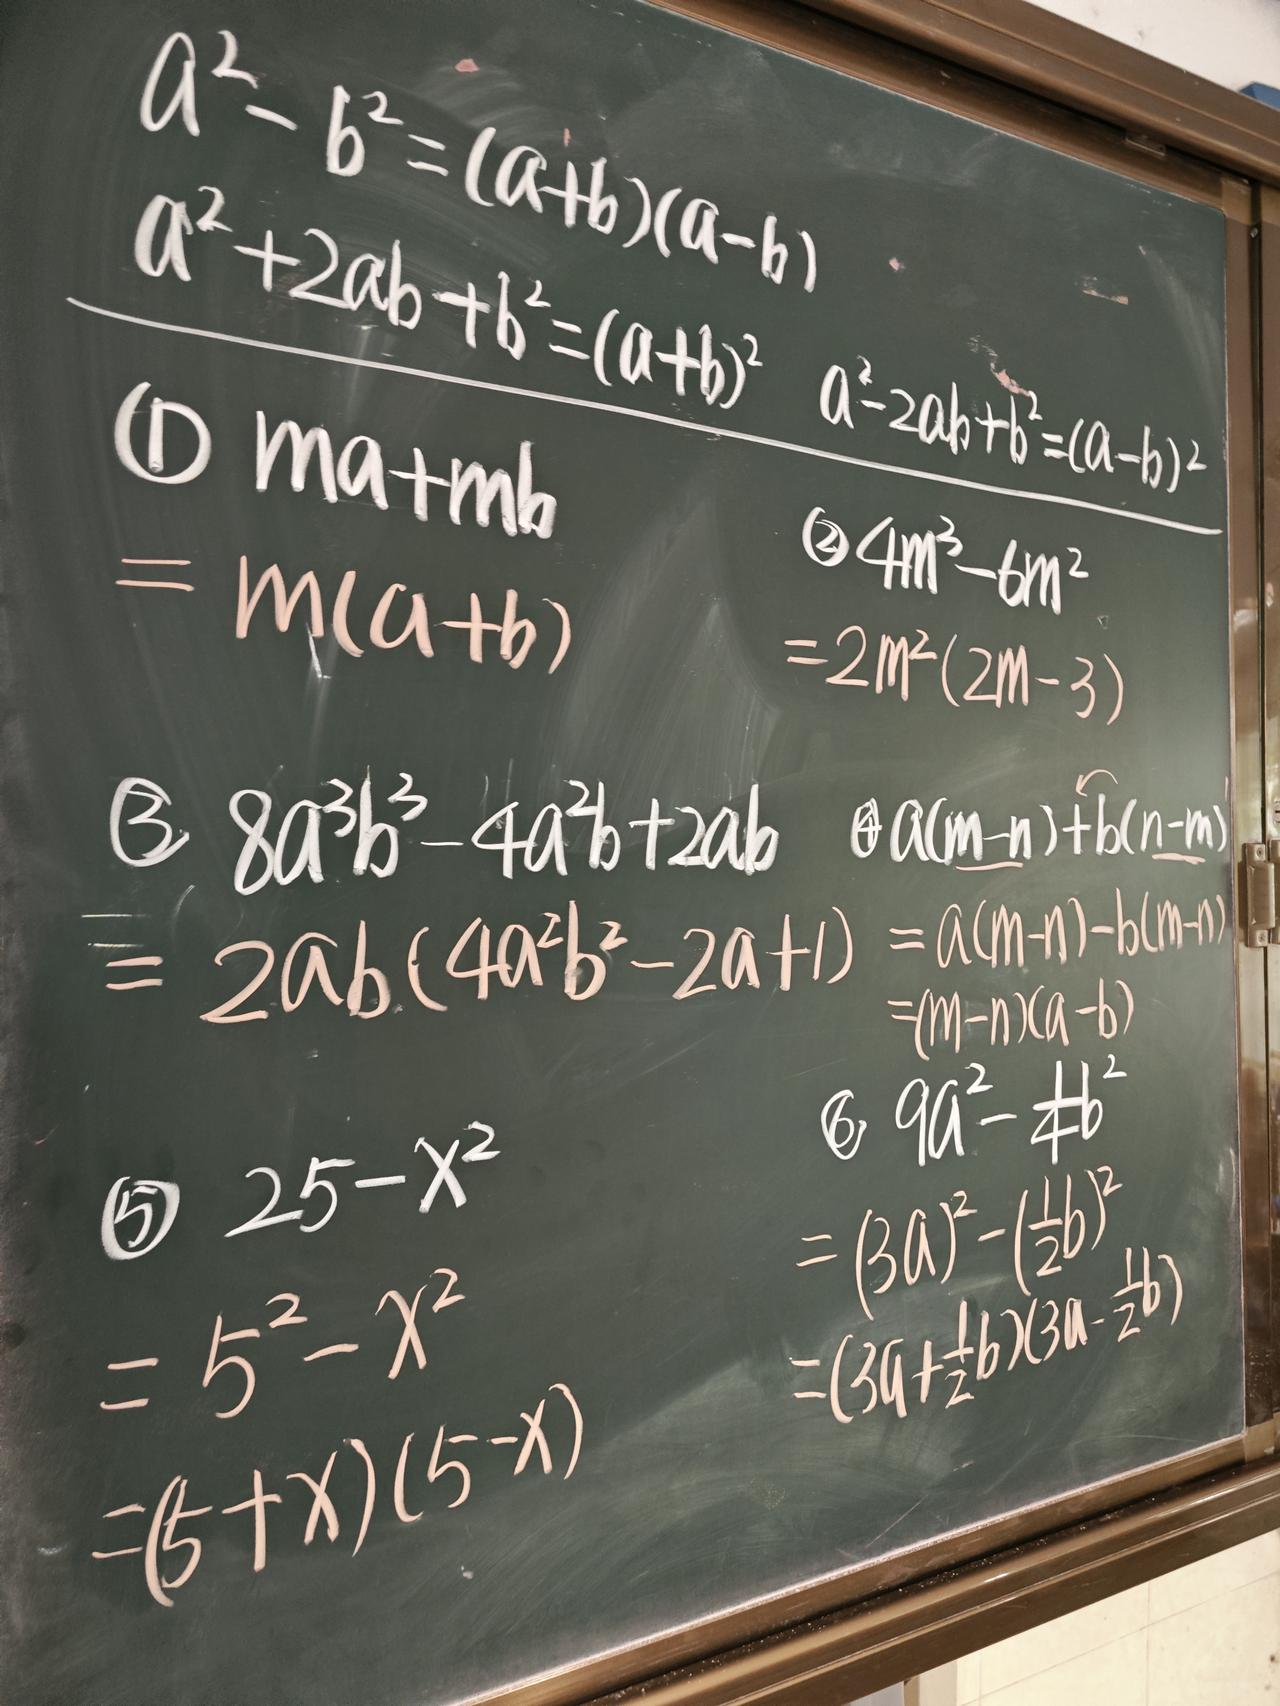 a²-b²=(a+b)(a-b)
a²+2ab+b²=(a+b)² a²-2ab+b²=(a-b)²
① ma+mb
=m(a+b)
② 4m³-6m²
=2m²(2m-3)
③ 8a³b³-4a²b+2ab
=2ab(4a²b²-2a+1)
④ a(m-n)+b(n-m)
=a(m-n)-b(m-n)
=(m-n)(a-b)
⑤ 25-x²
=5²-x²
=(5+x)(5-x)
⑥ 9a²-¼b²
=(3a)²-(½b)²
=(3a+½b)(3a-½b)